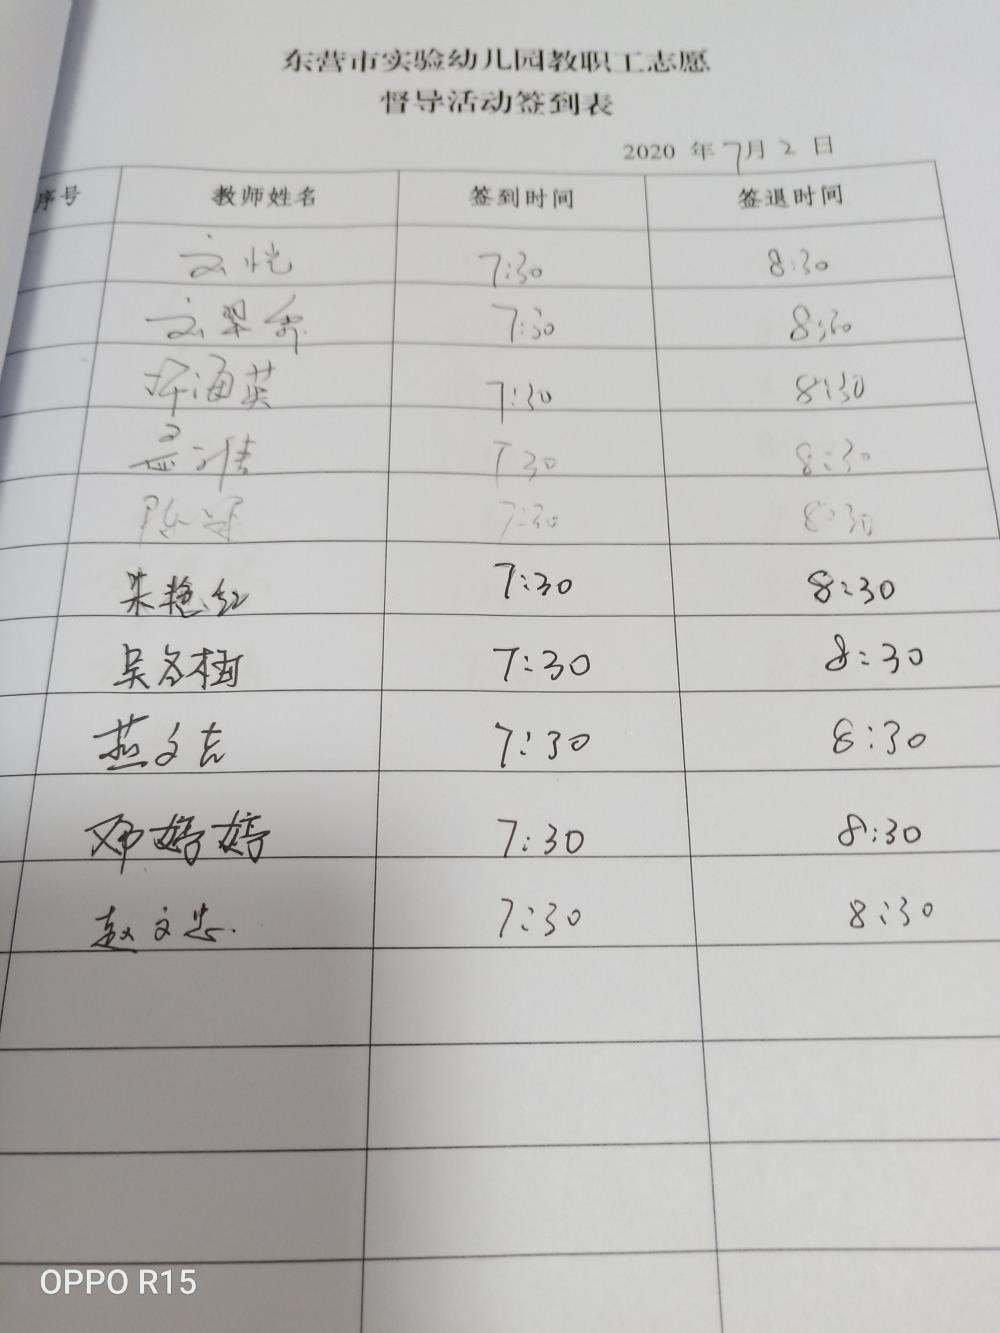 东营市实验幼儿园教职工志愿
督导活动签到表
2020 年 7月 2 日
序号 教师姓名 签到时间 签退时间
7:30 8:30
7:30 8:30
海英 7:30 8:30
7:30 8:30
陈 7:30 8:30
朱艳红 7:30 8:30
吴冬梅 7:30 8:30
燕文吉 7:30 8:30
邓婷婷 7:30 8:30
赵文忠 7:30 8:30
OPPO R15